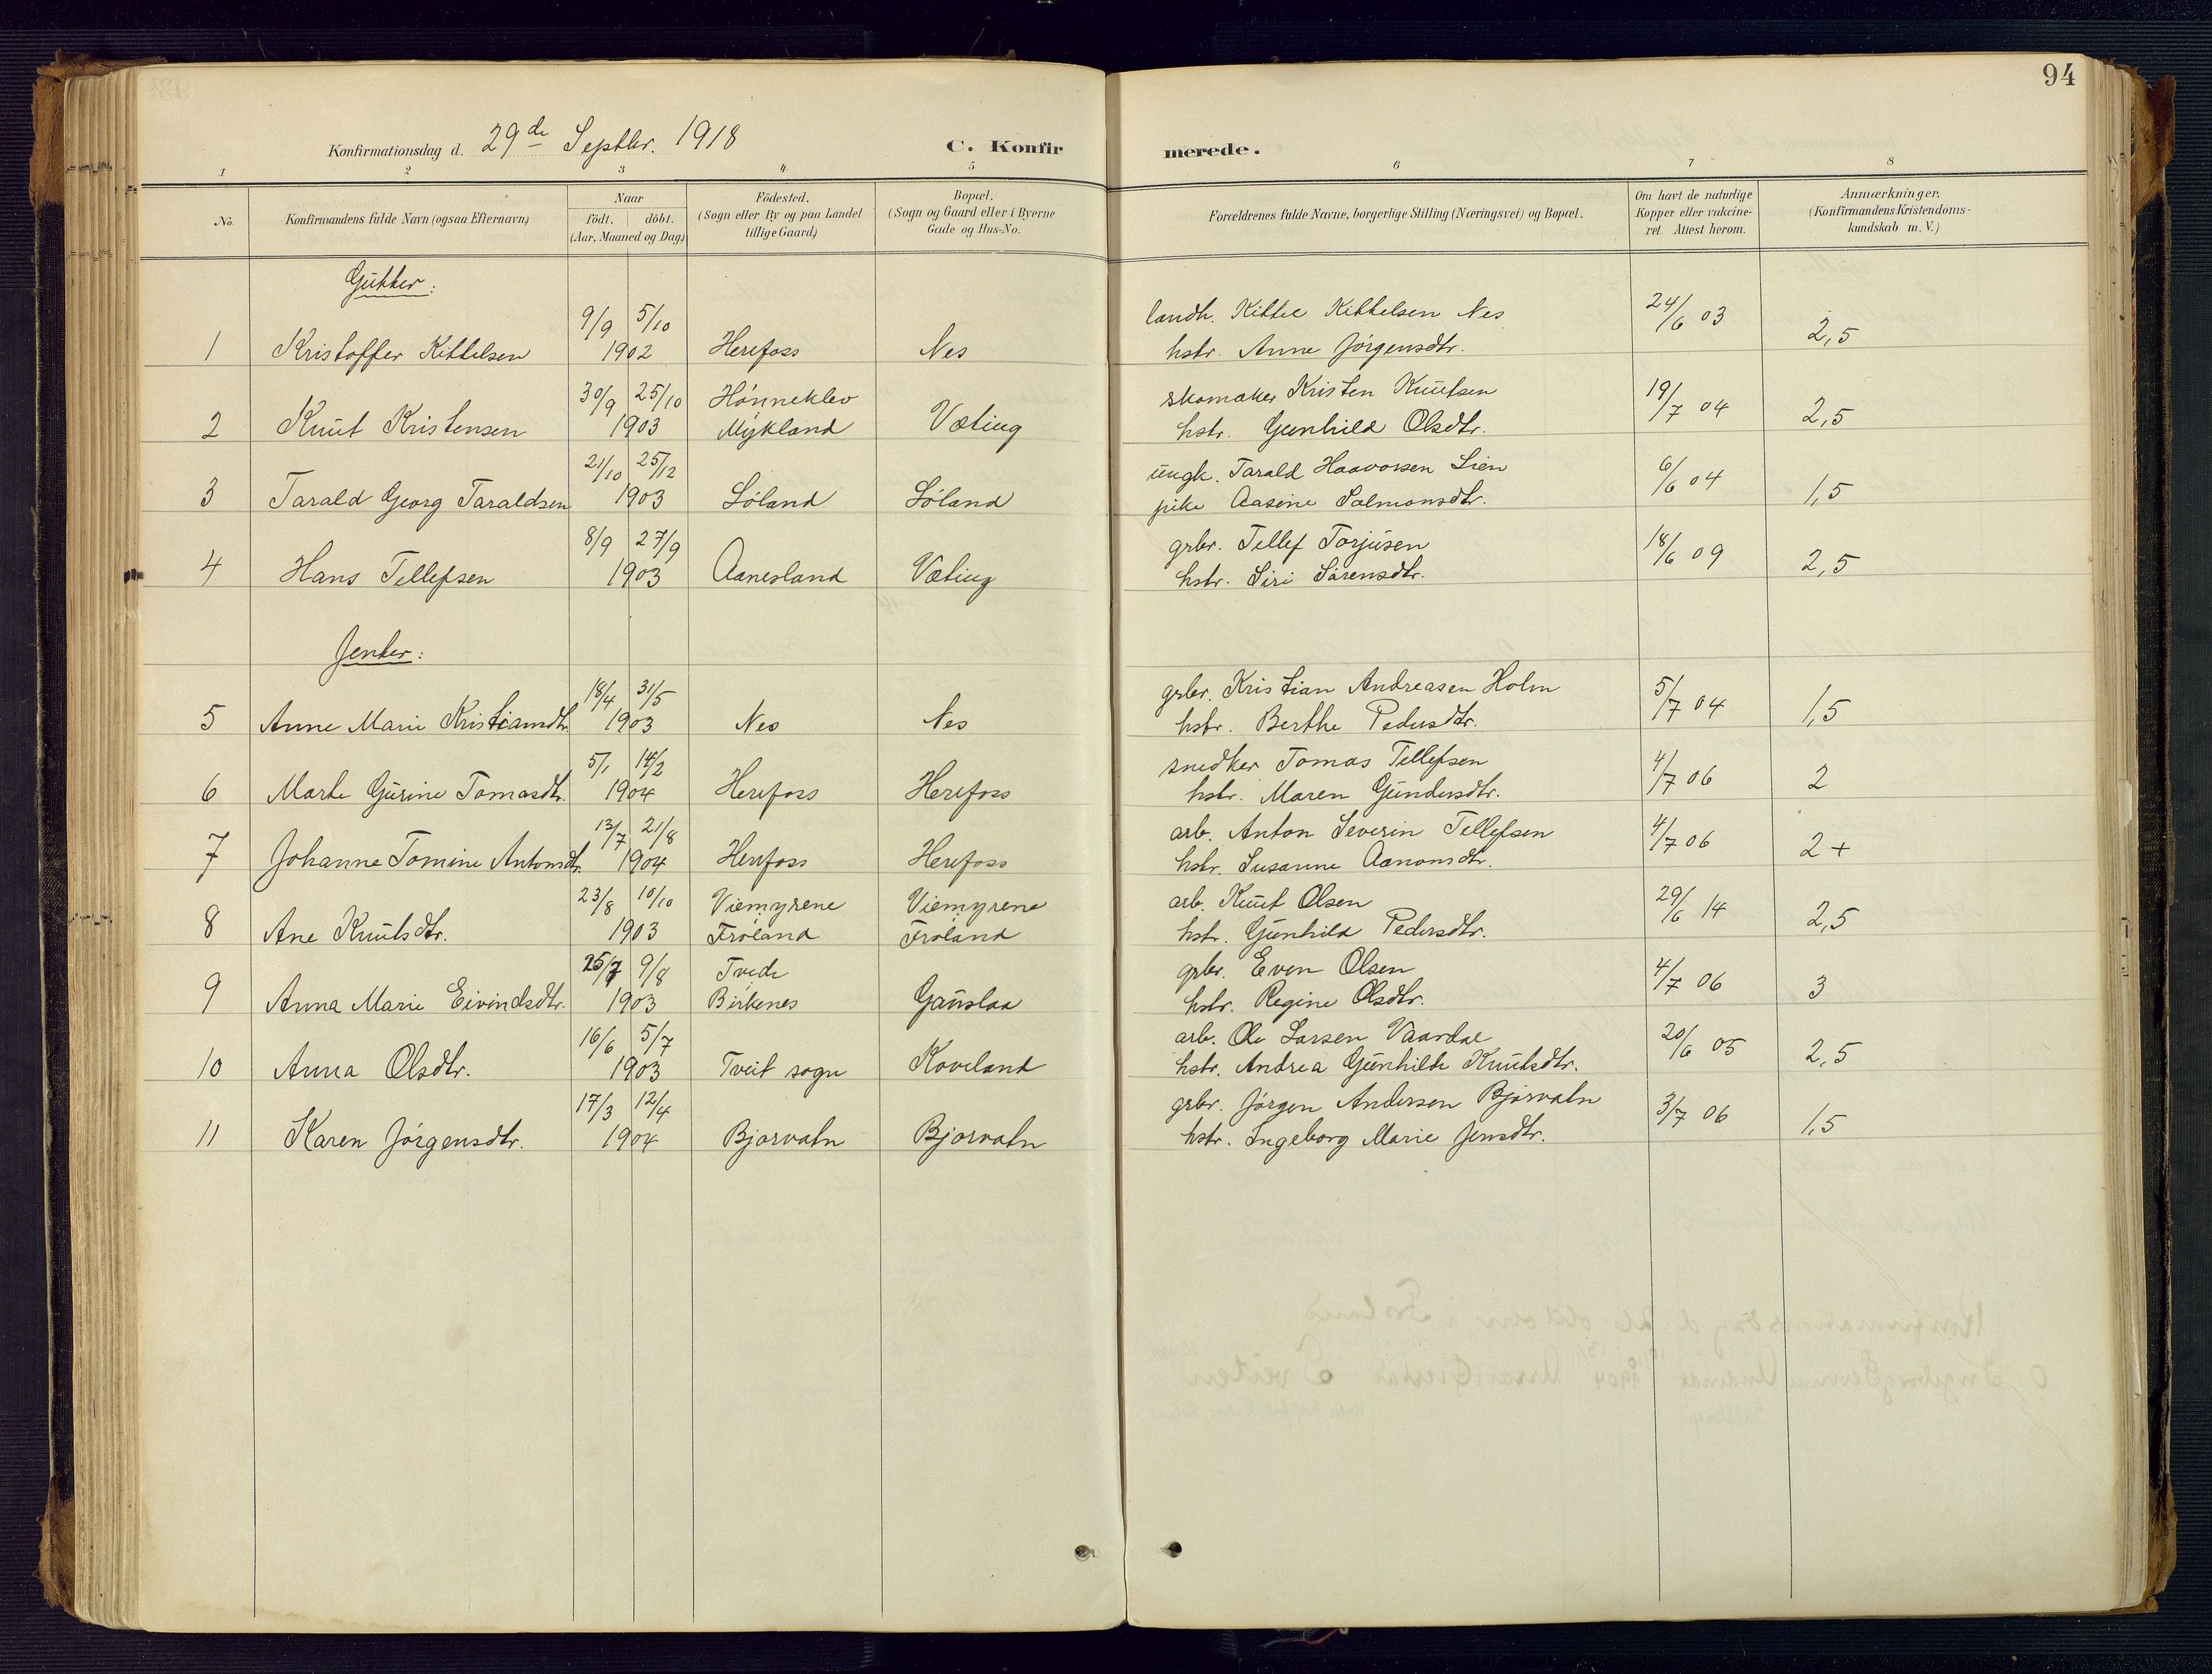 94
Konfirmationsdag d. 29de Septbr. 1918
C. Konfirmerede.
1 2 3 4 5 6 7 8
No. | Konfirmandens fulde Navn (ogsaa Efternavn) | Naar födt. döbt. (Aar, Maaned og Dag) | Födested. (Sogn eller By og paa Landet tillige Gaard) | Bopæl. (Sogn og Gaard eller i Byerne Gade og Hus-No. | Forældrenes fulde Navne, borgerlige Stilling (Næringsvei) og Bopæl. | Om havt de naturlige Kopper eller vakcineret. Attest herom. | Anmærkninger, (Konfirmandens Kristendomskundskab m. V.)
Gutter:
9/9 5/10 landh. Kittel Kittelsen Nes 24/6 03
1 Kristoffer Kittelsen 1902 Herefoss Nes hstr. Anne Jörgensdtr. 2,5
30/9 25/10 Hönneklev skomaker Kristen Knutsen 19/7 04
2 Knut Kristensen 1903 Mykland Væting hstr. Gunhild Olsdtr. 2,5
21/10 25/12 ungk. Tarald Haavorsen Lien 6/6 04
3 Tarald Georg Taraldsen 1903 Löland Löland pike Aasine Salmonsdtr. 1,5
8/9 27/9 grbr. Tellef Torjusen 18/6 09
4 Hans Tellefsen 1903 Aanesland Væting hstr. Siri Sörensdtr. 2,5
Jenter:
18/4 31/5 grbr. Kristian Andreasen Holm 5/7 04
5 Anne Marie Kristiansdtr. 1903 Nes Nes hstr. Berthe Pedersdtr. 1,5
5/1 14/2 snedker Tomas Tellefsen 4/7 06
6 Marte Gurine Tomasdtr. 1904 Herefoss Herefoss hstr. Maren Gundersdtr. 2
13/7 21/8 arb. Anton Severin Tellefsen 4/7 06
7 Johanne Tomine Antonsdtr. 1904 Herefoss Herefoss hstr. Susanne Aanonsdtr. 2+
23/8 10/10 Viemyrene Viemyrene arb. Knut Olsen 29/6 14
8 Ane Knutsdtr. 1903 Fröland Fröland hstr. Gunhild Pedersdtr. 2,5
25/7 9/8 Tvede grbr. Even Olsen 4/7 06
9 Anna Marie Eivindsdtr. 1903 Birkenes Gauslaa hstr. Regine Olsdtr. 3
16/6 5/7 arb. Ole Larsen Vaardal 20/6 05
10 Anna Olsdtr. 1903 Tveit sogn Koveland hstr. Andrea Gunhilde Knutsdtr. 2,5
17/3 12/4 grbr. Jörgen Andersen Bjorvatn 3/7 06
11 Karen Jörgensdtr. 1904 Bjorvatn Bjorvatn hstr. Ingeborg Marie Jensdtr. 1,5